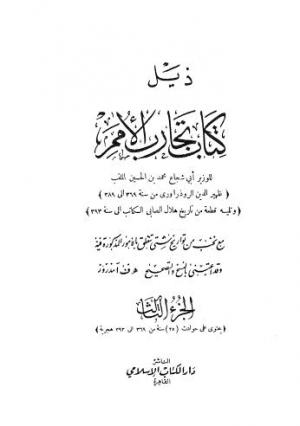 ذيل
كتاب تجارب الأمم
للوزير أبي شجاع محمد بن الحسين الملقب
( ظهير الدين الروذراورى من سنة ٣٦٩ الى ٣٨٩ )
( وتليه قطعة من تاريخ هلال الصابى الكاتب الى سنة ٣٩٣ )
مع نخب من تواريخ شتى تتعلق بالأمور المذكورة فيه
وقد اعتنى بالنسخ والتصحيح ه. ف. آمدروز
الجزء الثالث
( يحتوى على حوادث (٢٥) سنة من ٣٦٩ الى ٣٩٣ هجرية )
الناشر
دار الكتاب الإسلامي
القاهرة